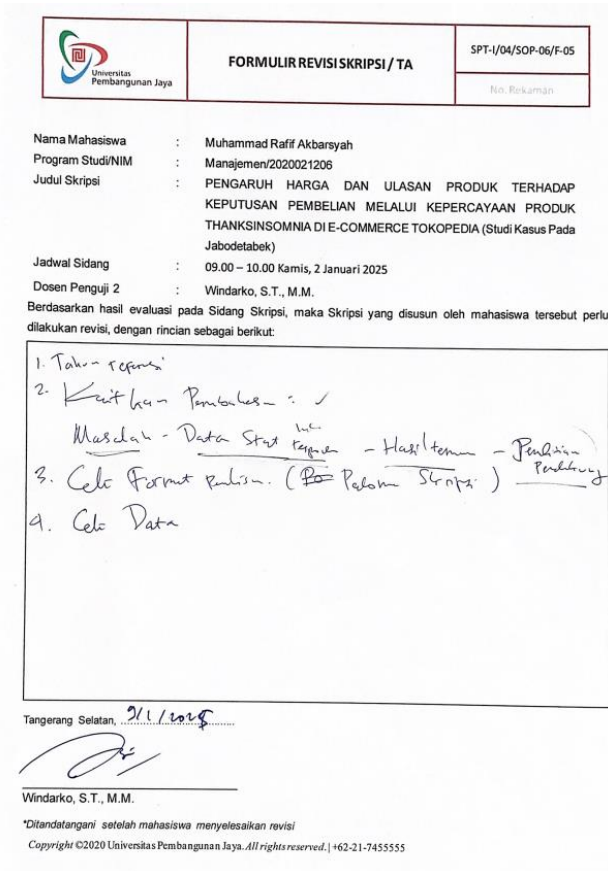 Universitas
Pembangunan Jaya
FORMULIR REVISI SKRIPSI / TA
SPT-I/04/SOP-06/F-05
No. Rekaman
Nama Mahasiswa : Muhammad Rafif Akbarsyah
Program Studi/NIM : Manajemen/2020021206
Judul Skripsi : PENGARUH HARGA DAN ULASAN PRODUK TERHADAP
KEPUTUSAN PEMBELIAN MELALUI KEPERCAYAAN PRODUK
THANKSINSOMNIA DI E-COMMERCE TOKOPEDIA (Studi Kasus Pada
Jabodetabek)
Jadwal Sidang : 09.00 – 10.00 Kamis, 2 Januari 2025
Dosen Penguji 2 : Windarko, S.T., M.M.
Berdasarkan hasil evaluasi pada Sidang Skripsi, maka Skripsi yang disusun oleh mahasiswa tersebut perlu
dilakukan revisi, dengan rincian sebagai berikut:
1. Tahun referensi
2. Kaitkan Pembahasan : ✓
Masalah - Data Stat - Hasil temuan - Penelitian
Pendukung
3. Cek Format (Pedoman Skripsi)
4. Cek Data
Tangerang Selatan, 9/1/2025
Windarko, S.T., M.M.
*Ditandatangani setelah mahasiswa menyelesaikan revisi
Copyright ©2020 Universitas Pembangunan Jaya. All rights reserved. | +62-21-7455555